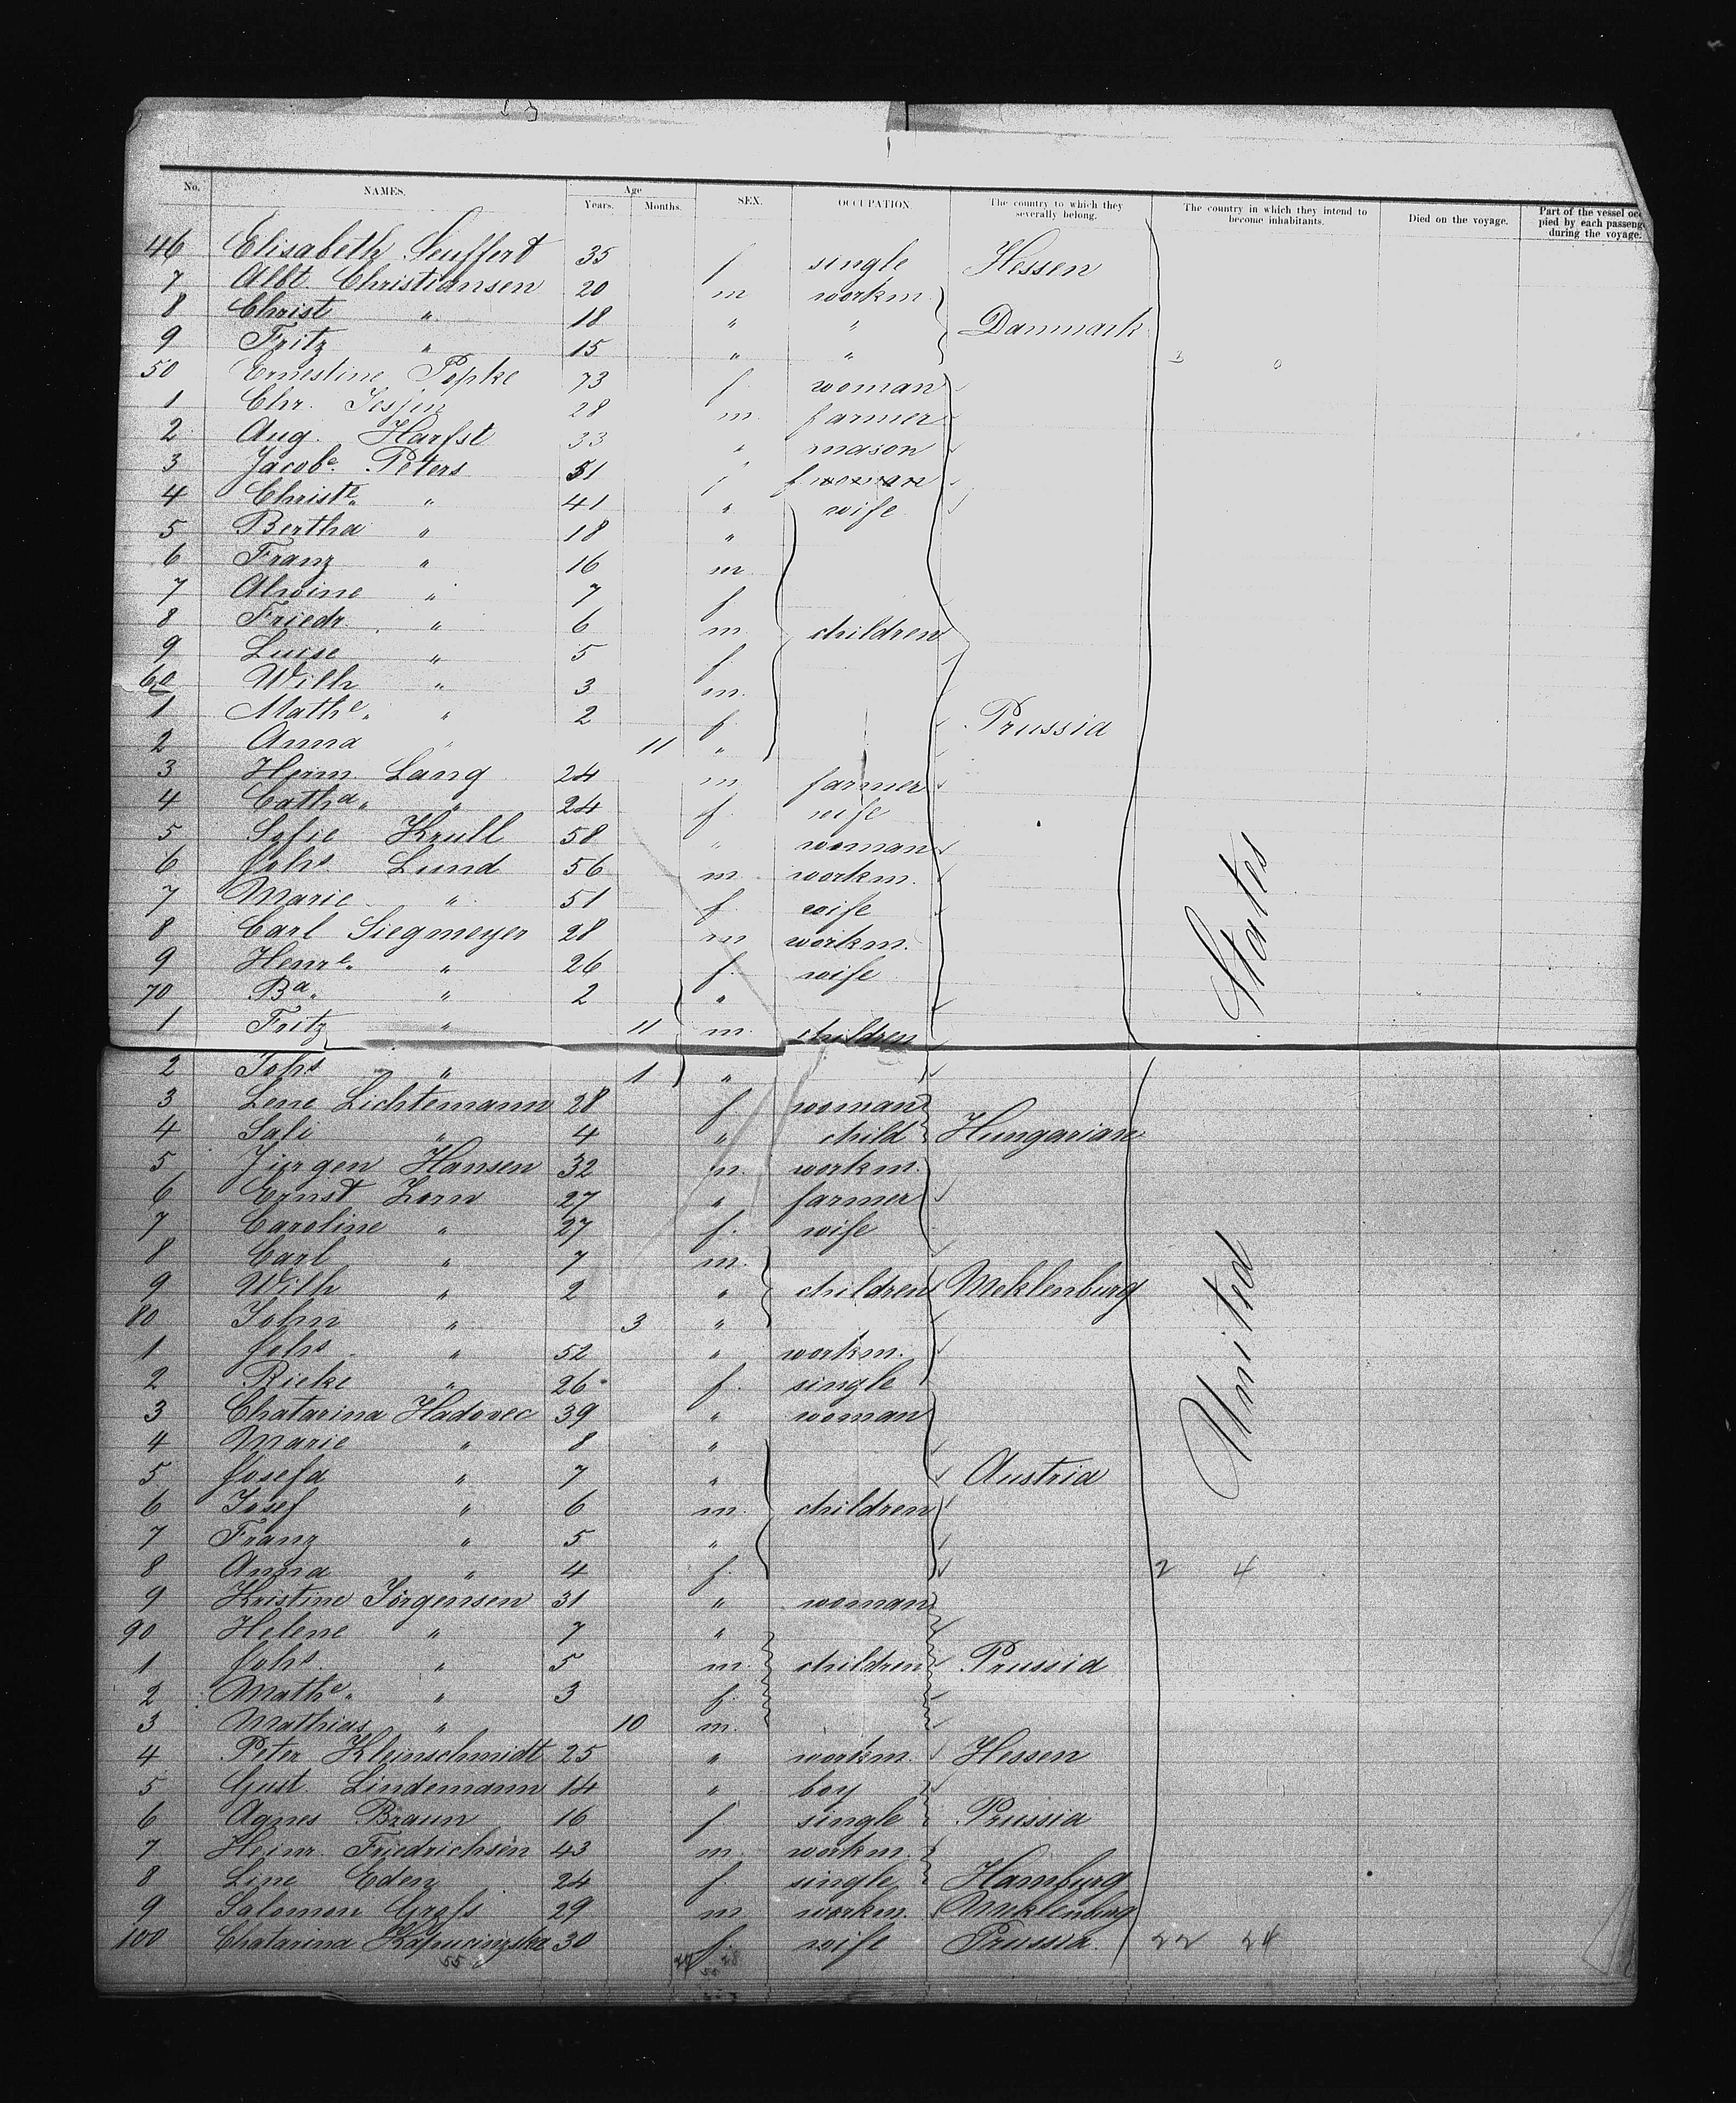 No. NAMES. Age Years. Months. SEX. OCCUPATION. The country to which they severally belong. The country in which they intend to become inhabitants. Died on the voyage. Part of the vessel occupied by each passenger during the voyage.
46 Elisabeth Seuffert 35 f single Hessen
7 Albt. Christiansen 20 m workm.
8 Christ " 18 " " Danmark
9 Fritz " 15 " "
50 Ernestine Popke 73 f. woman
1 Chr. Jessen 28 m. farmer
2 Aug. Harfst 33 " mason
3 Jacobe. Peters 51 f woman
4 Christe. " 41 " wife
5 Bertha " 18 "
6 Franz " 16 m
7 Alwine " 7 f
8 Friedr. " 6 m. children
9 Luise " 5 f.
60 Wilh " 3 m.
1 Mathe. " 2 f Prussia
2 Anna " 11 "
3 Herm. Lang 24 m farmer
4 Catha. " 24 f. wife
5 Sofie Krull 58 " woman
6 Johs. Lund 56 m workm.
7 Marie " 51 f wife
8 Carl Siegmeyer 28 m workm.
9 Henre. " 26 f. wife
70 Ba. " 2 "
1 Fritz " 11 m. children
2 Johs " 1 "
3 Lene Lichtemann 28 f woman
4 Sali " 4 " child Hungarian
5 Jürgen Hansen 32 m. workm.
6 Ernst Zorn 27 " farmer
7 Caroline " 27 f. wife
8 Carl " 7 m.
9 Wilh " 2 " children Meklenburg
80 John " 3 "
1 Johs. " 52 " workm.
2 Rieke " 26 f. single
3 Chatarina Hadovec 39 " woman
4 Marie " 8 "
5 Josefa " 7 " Austria
6 Josef " 6 m. children
7 Franz " 5 "
8 Anna " 4 f. 2 4
9 Kristine Jörgensen 31 " woman
90 Helene " 7 "
1 Johs " 5 m. children Prussia
2 Mathe. " 3 f.
3 Mathias " 10 m.
4 Peter Kleinschmidt 25 " workm. Hessen
5 Gust. Lindemann 14 " boy
6 Agnes Braun 16 f single Prussia
7 Heinr. Friedrichsen 43 m. workm.
8 Line Eden 24 f. single Hamburg
9 Salomon Grafs 29 m workm. Meklenburg
100 Chatarina 30 f. wife Prussia. 22 24
55
United States